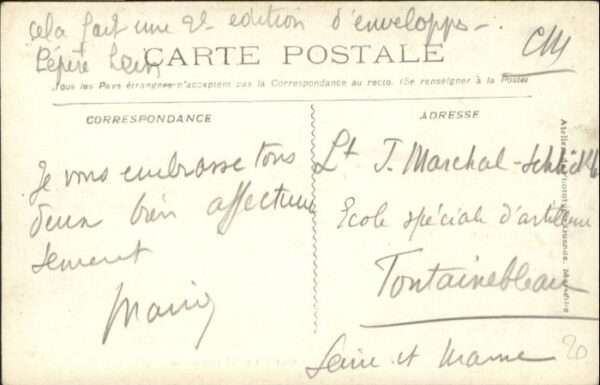 cela fait une 2e edition d'envelopps-
Pépère
CM
CARTE POSTALE
Tous les Pays étrangers n'acceptent pas la Correspondance au recto. (Se renseigner à la Poste)
CORRESPONDANCE
ADRESSE
Je vous embrasse tous
deux bien affectueu
sement
Lt J. Marchal-
Ecole spéciale d'artillerie
Fontainebleau
Seine et Marne
20